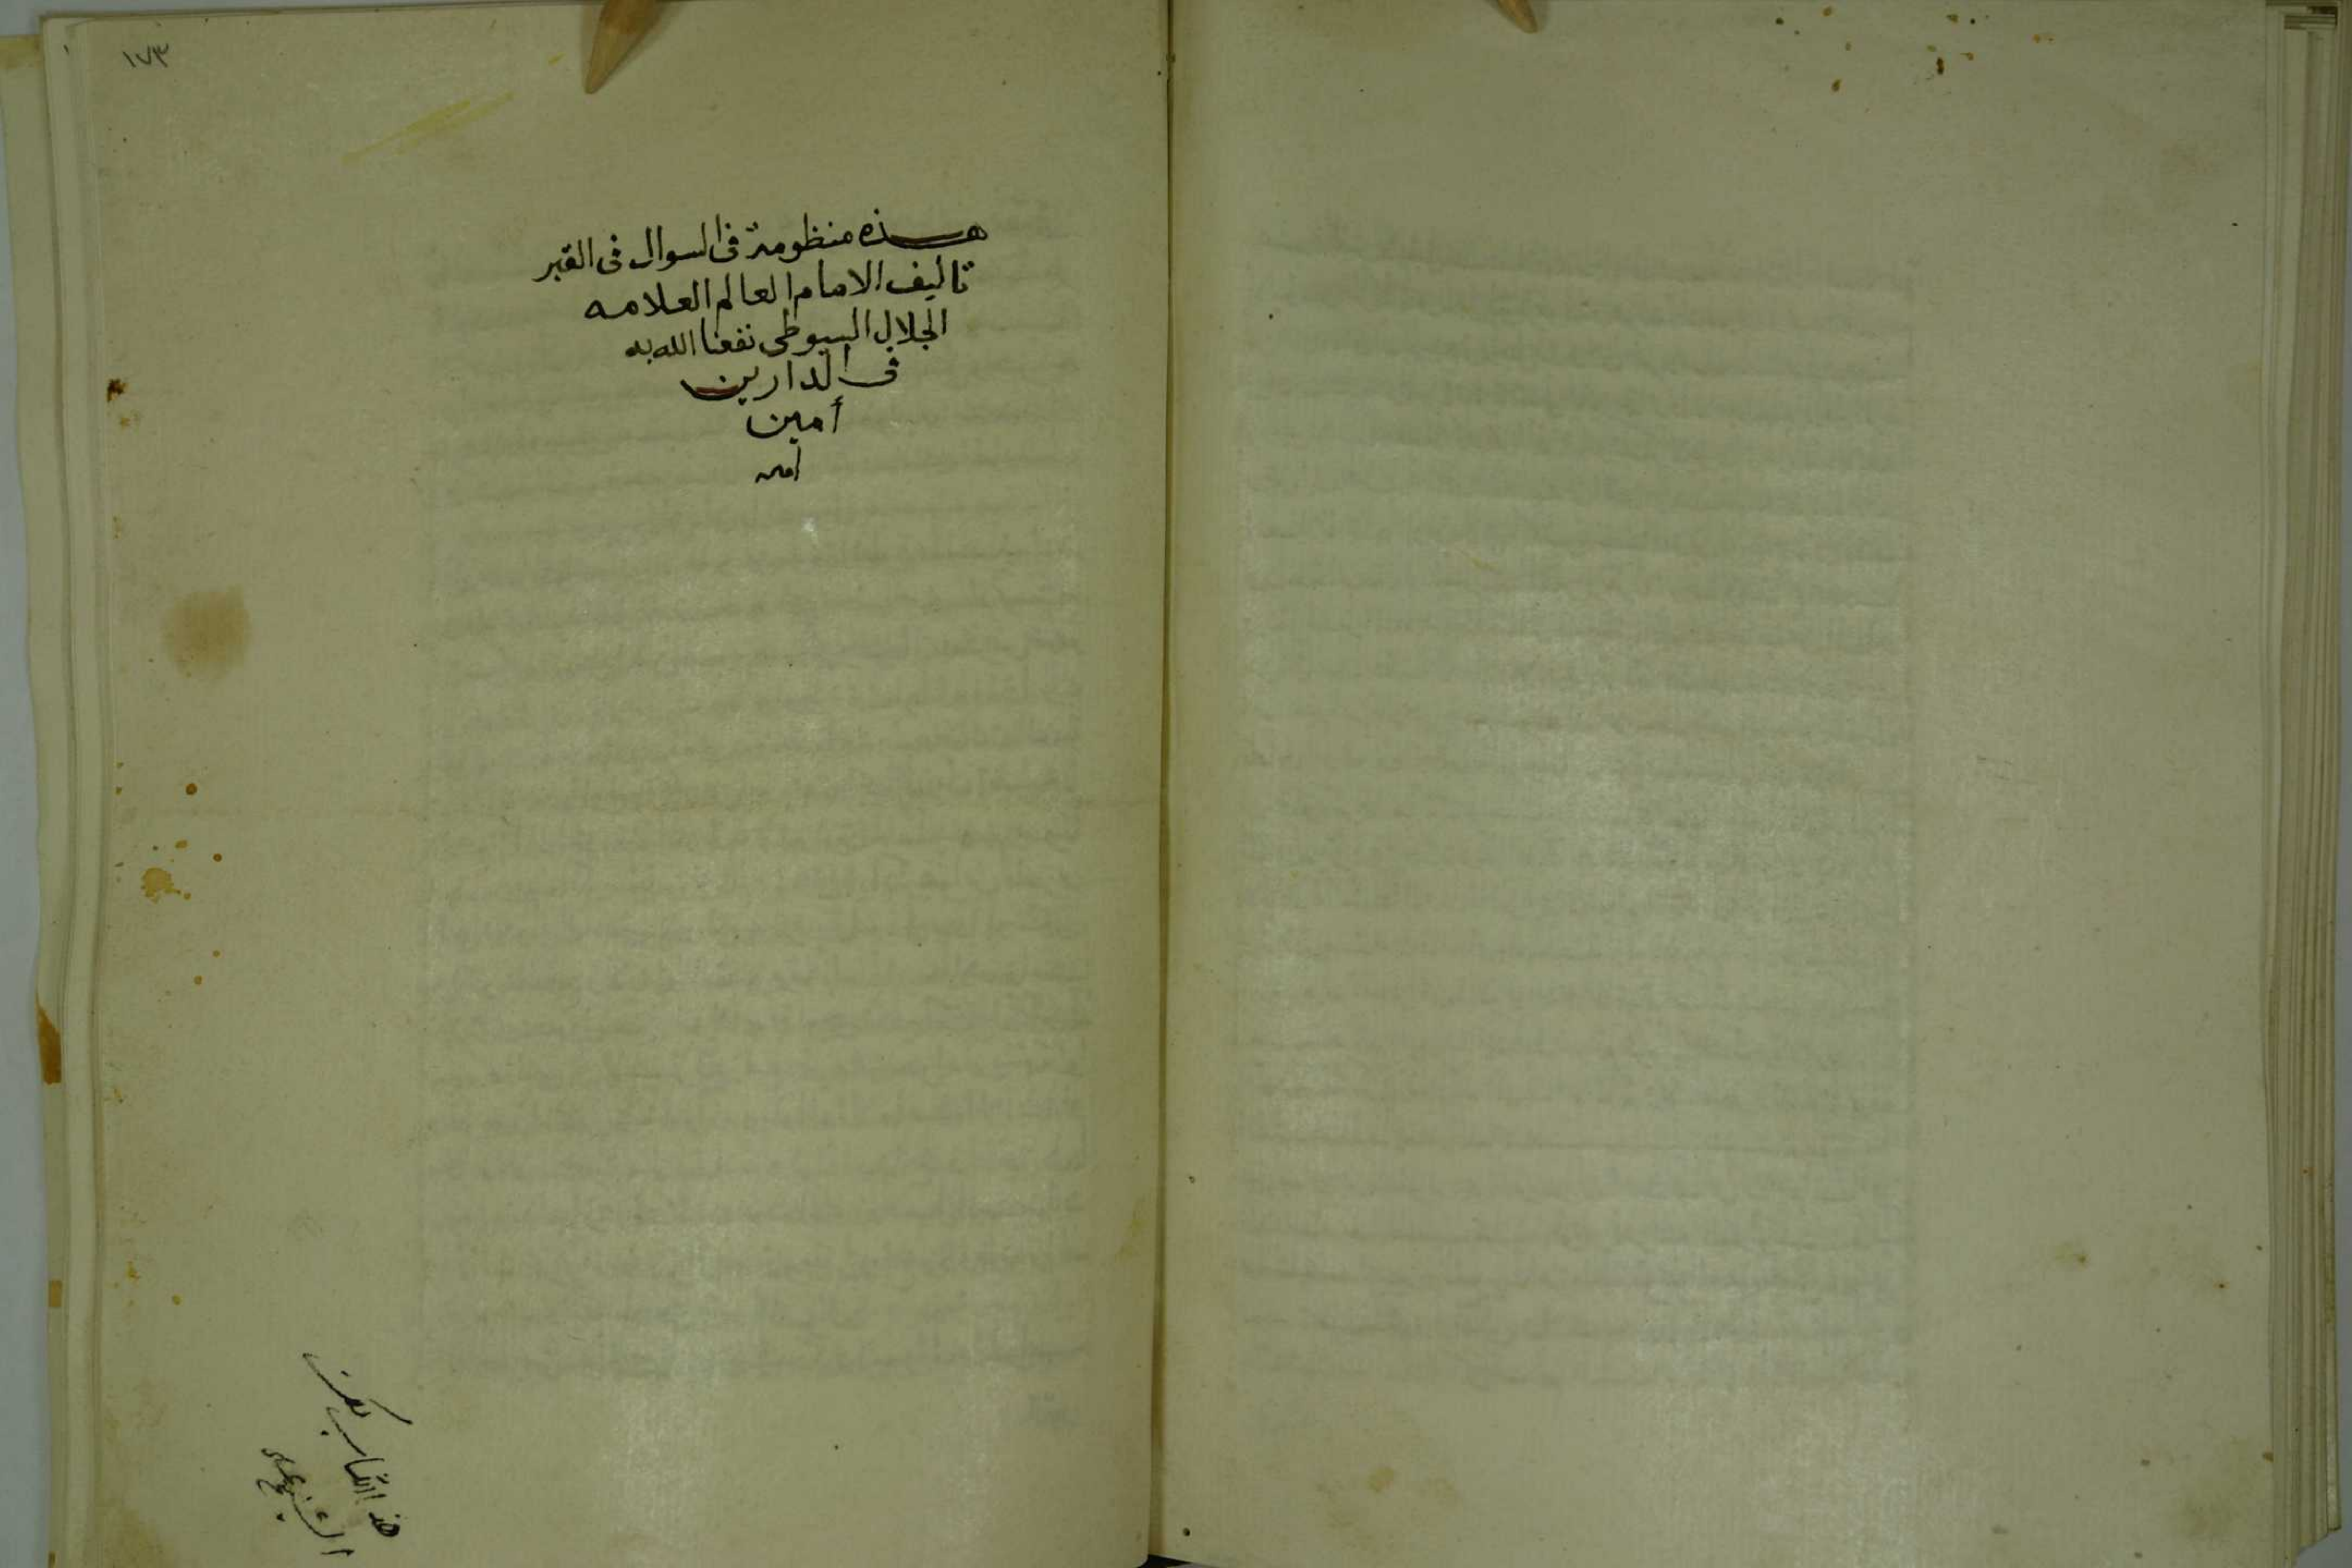 ١٧٣
هذه منظومة فى السوال فى القبر
تاليف الامام العالم العلامه
الجلال السيوطى نفعنا الله به
فى الدارين
أمين
امين
هذ الكتاب
الشيخ على